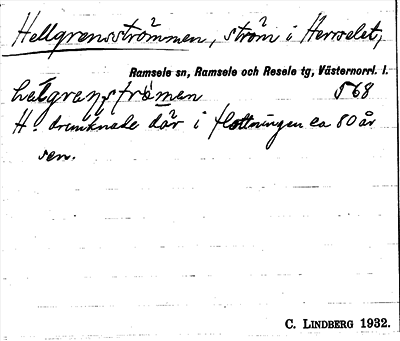 Hellgrensströmmen, ström i Herrselet,
Ramsele sn, Ramsele och Resele tg, Västernorrl. l.
568
H. drunknade där i flottningen ca 80 år
sen.
C. LINDBERG 1932.